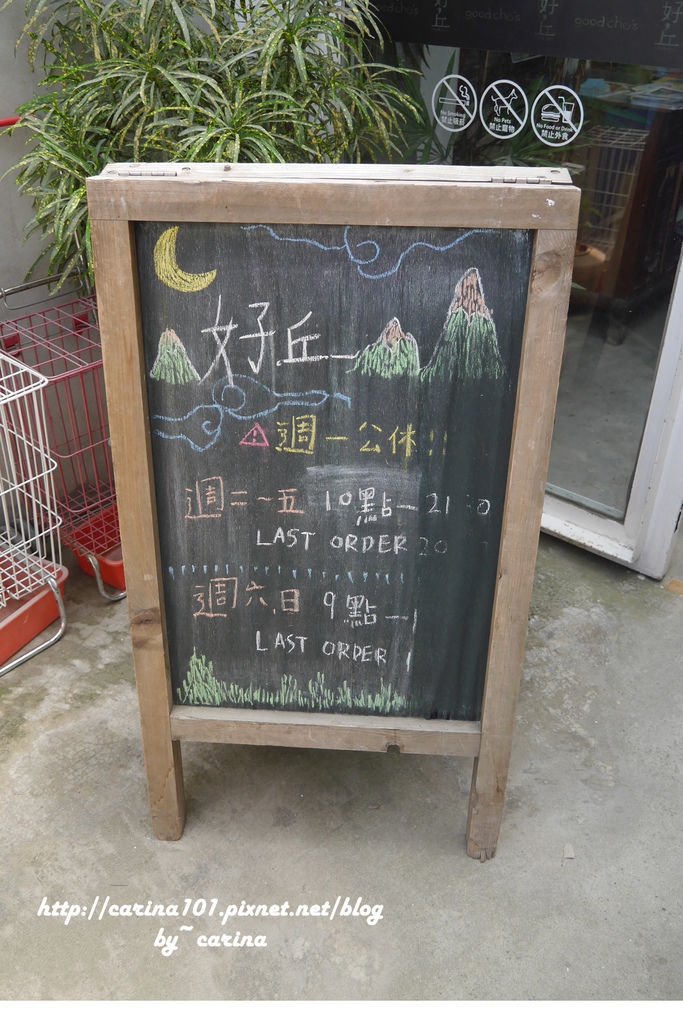 good cho's
好丘
good cho's
好丘
good cho's
好丘
No Smoking
禁止吸菸
No Pets
禁止寵物
No Food or Drink
禁止外食
好丘
週一公休!!
週二~五 10點—21
LAST ORDER 20
週六.日 9點—
LAST ORDER
http://carina101.pixnet.net/blog
by~carina